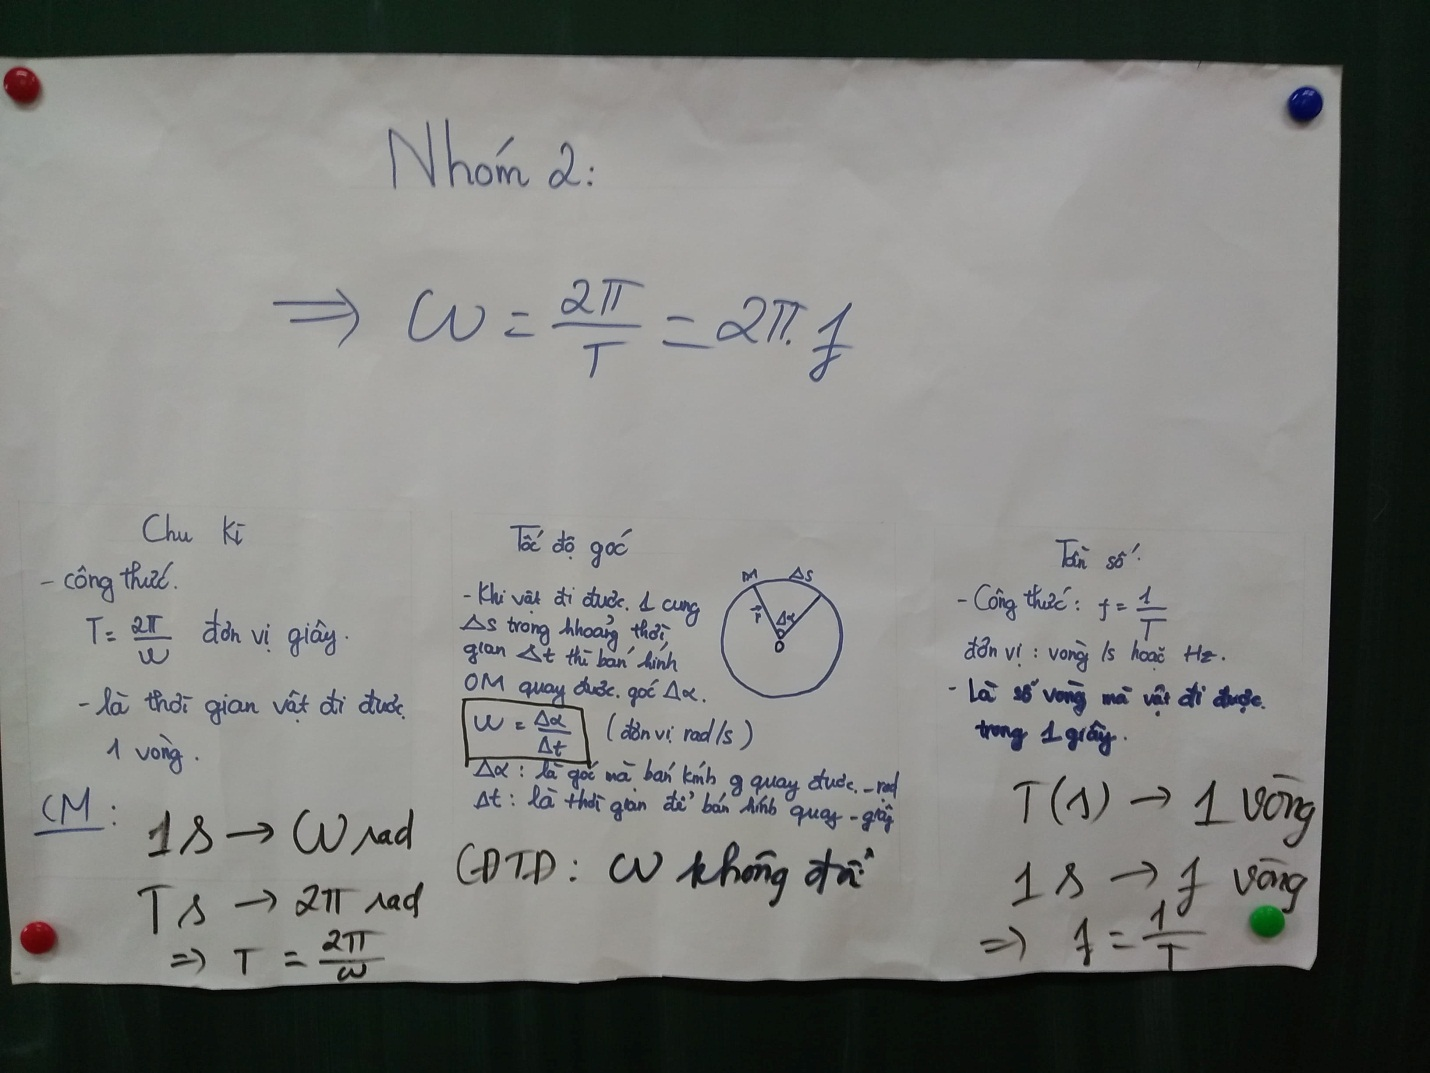 Nhóm 2:
⇒ ω = 2π/T = 2π.f
Chu kì
- công thức.
T = 2π/ω đơn vị giây.
- là thời gian vật đi được
1 vòng.
CM:
1s → ω rad
Ts → 2π rad
⇒ T = 2π/ω
Tốc độ góc
- Khi vật đi được 1 cung
Δs trong khoảng thời
gian Δt thì bán kính
OM quay được góc Δα.
ω = Δα/Δt (đơn vị rad/s)
Δα: là góc mà bán kính q quay được - rad
Δt: là thời gian để bán kính quay - giây
M Δs
r Δα
O
CĐTĐ: ω không đổi
Tần số
- Công thức: f = 1/T
đơn vị: vòng/s hoặc Hz.
- Là số vòng mà vật đi được
trong 1 giây.
T(s) → 1 vòng
1s → f vòng
⇒ f = 1/T